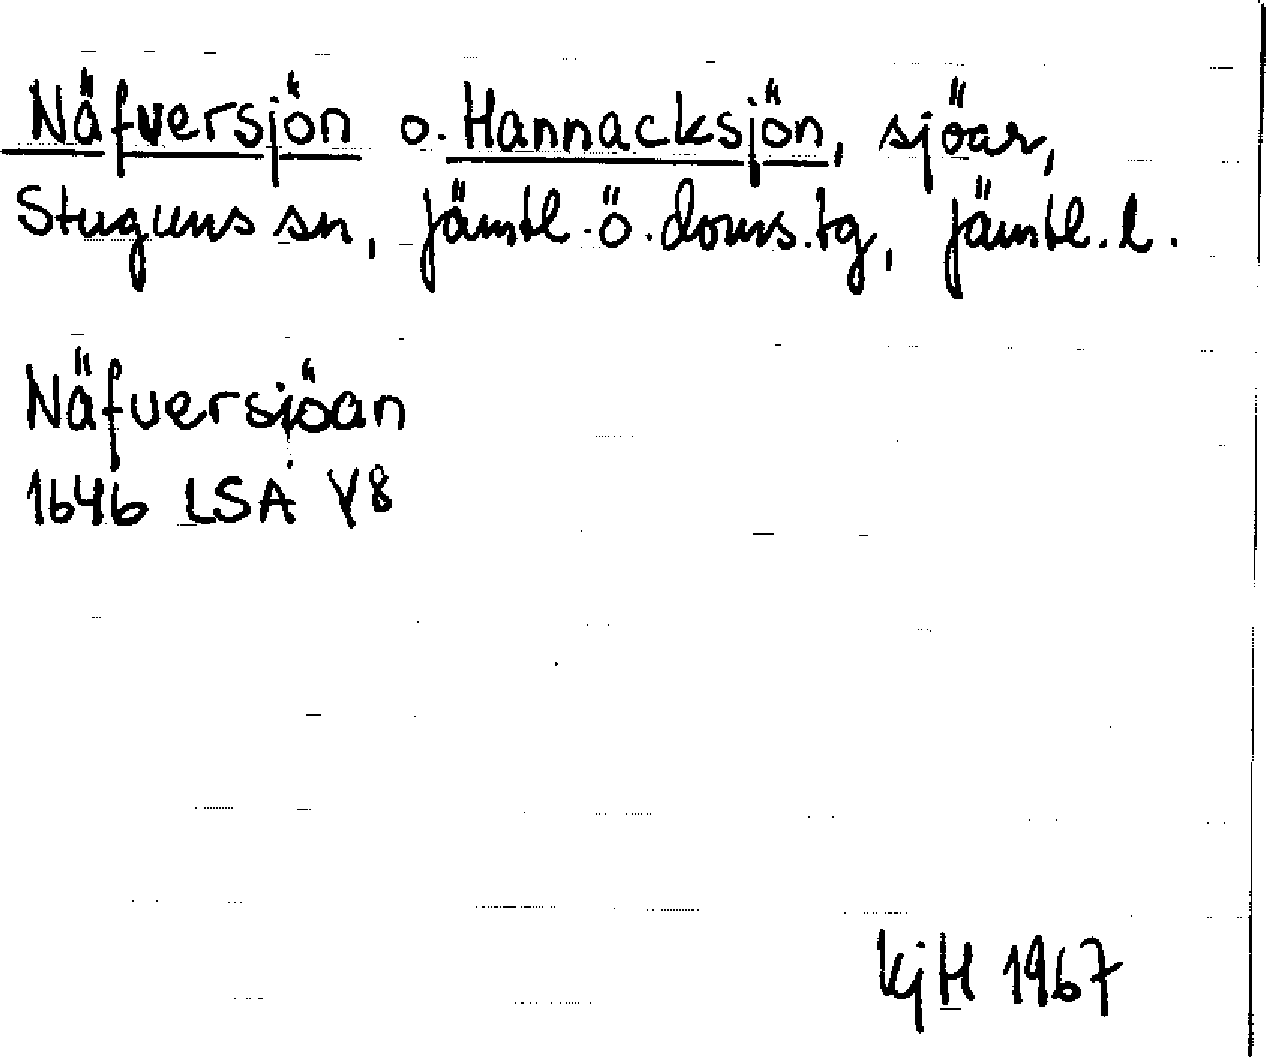 Näfversjön o. Hannacksjön, sjöar,
Stuguns sn, Jämtl. ö. doms. tg, Jämtl. l.
Näfversjöan
1646 LSA Y8
KjH 1967